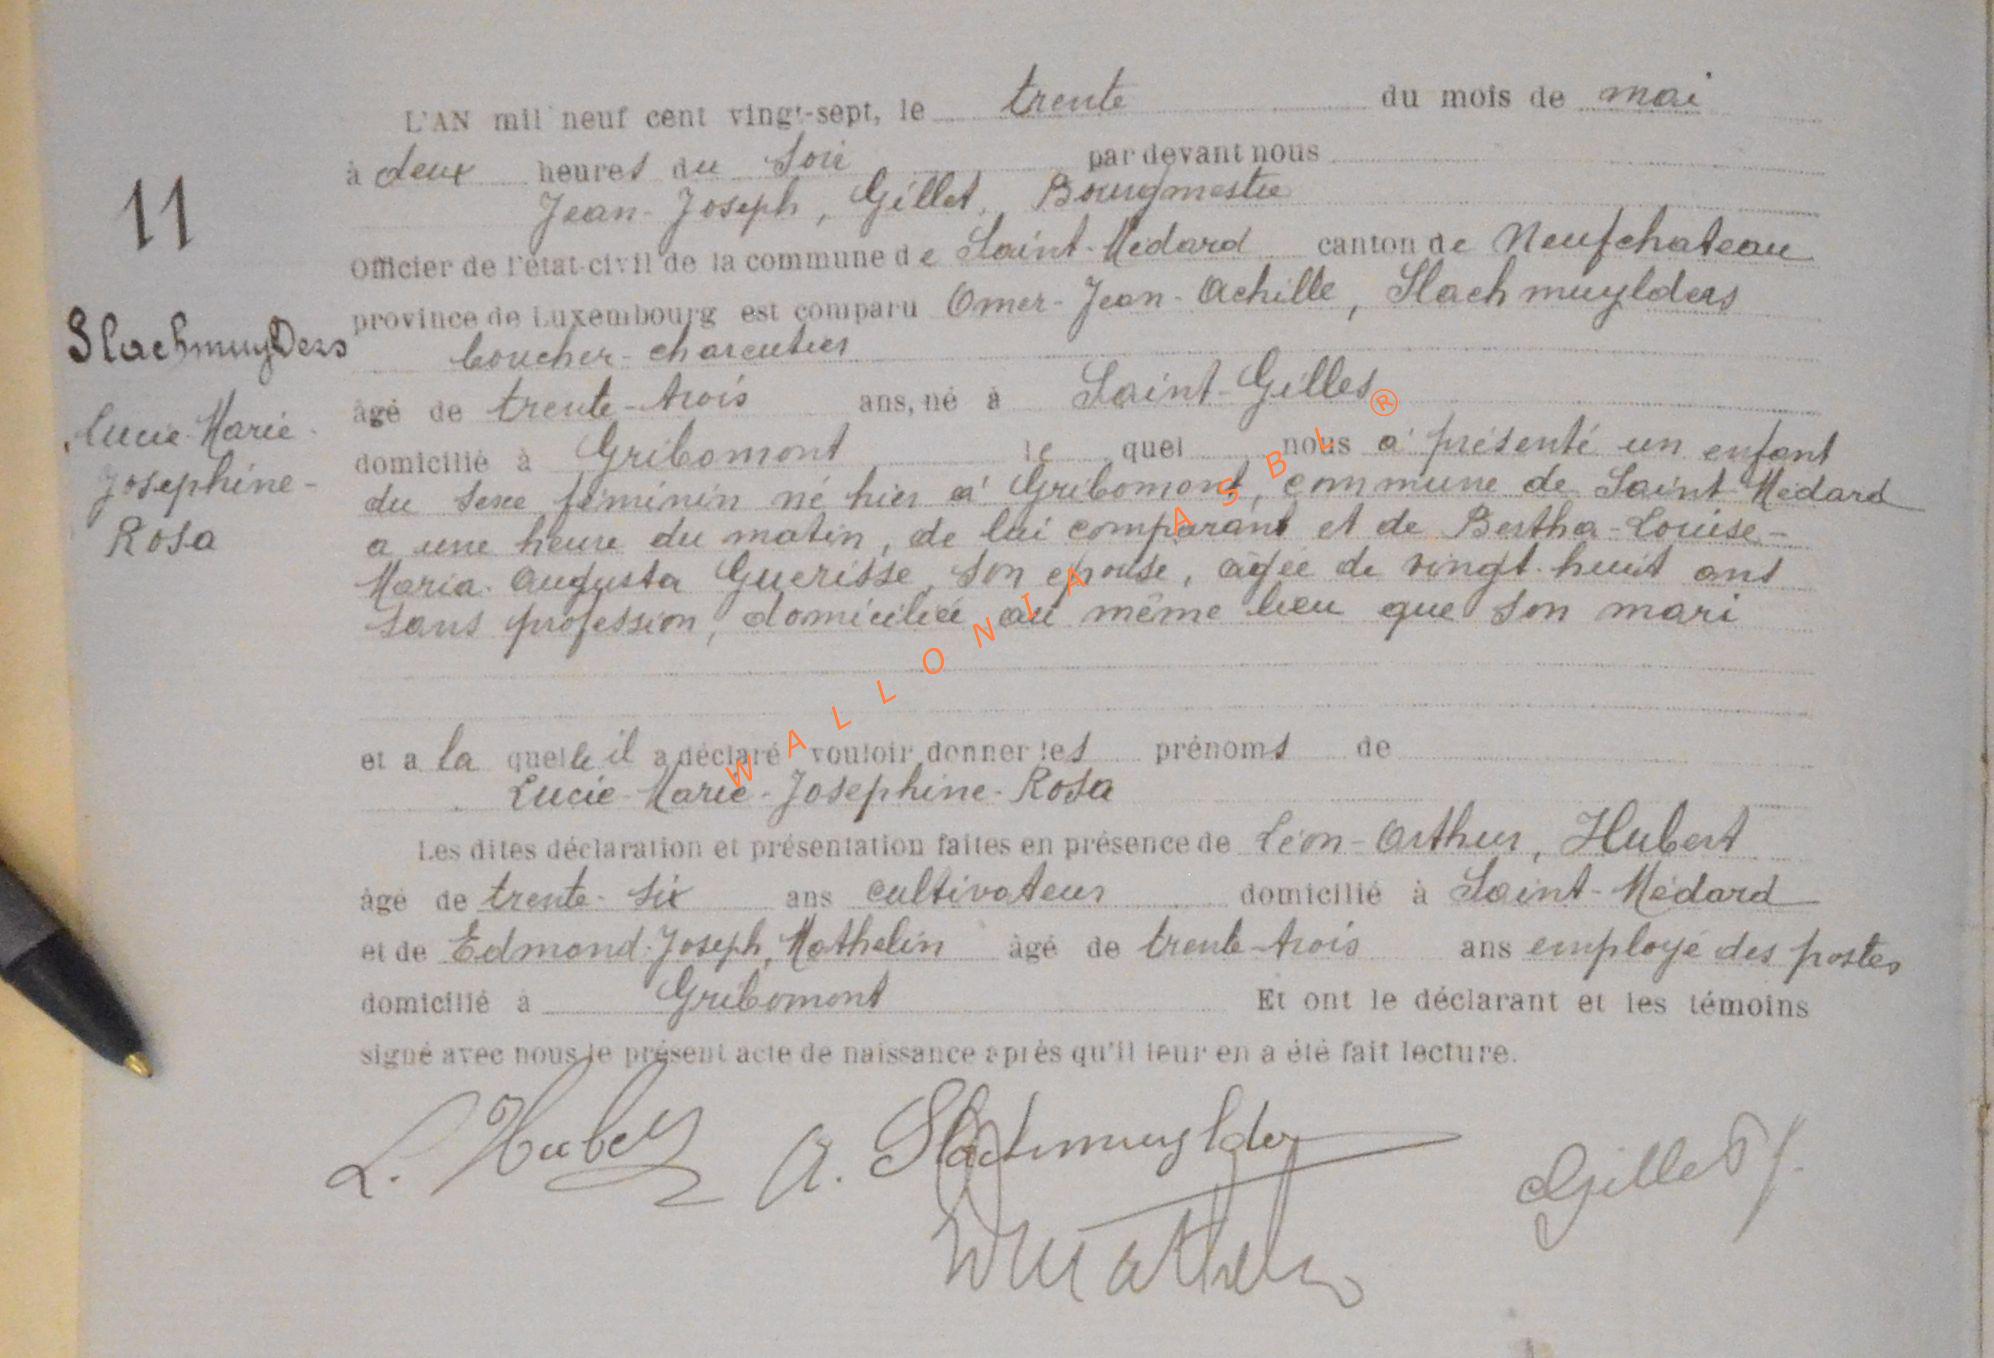 L'AN mil neuf cent vingt-sept, le trente du mois de mai
à deux heures du soir par devant nous
Jean-Joseph, Gillet, Bourgmestre
11
Officier de l'état-civil de la commune de Saint-Médard canton de Neufchateau
province de Luxembourg est comparu Omer-Jean-Achille, Slachmuylders
Slachmuylders
boucher-charcutier
âgé de trente-trois ans, né à Saint-Gilles
Lucie-Marie-
domicilié à Gribomont le quel nous a présenté un enfant
Josephine-
du sexe féminin né hier à Gribomont, commune de Saint-Médard
Rosa
a une heure du matin, de lui comparant et de Bertha-Louise-
Maria-Augusta Guerisse, son epouse, agée de vingt-huit ans
sans profession, domiciliée au même lieu que son mari
et a la quelle il a déclaré vouloir donner les prénoms de
Lucie-Marie-Josephine-Rosa
Les dites déclaration et présentation faites en présence de Léon-Arthur, Hubert
âgé de trente-six ans cultivateur domicilié à Saint-Médard
et de Edmond-Joseph, Mathelin âgé de trente-trois ans employé des postes
domicilié à Gribomont Et ont le déclarant et les témoins
signé avec nous le présent acte de naissance après qu'il leur en a été fait lecture.
L. Hubert A. Slachmuylders Gillet J.
Mathelin
WALLONIA ASBL ®